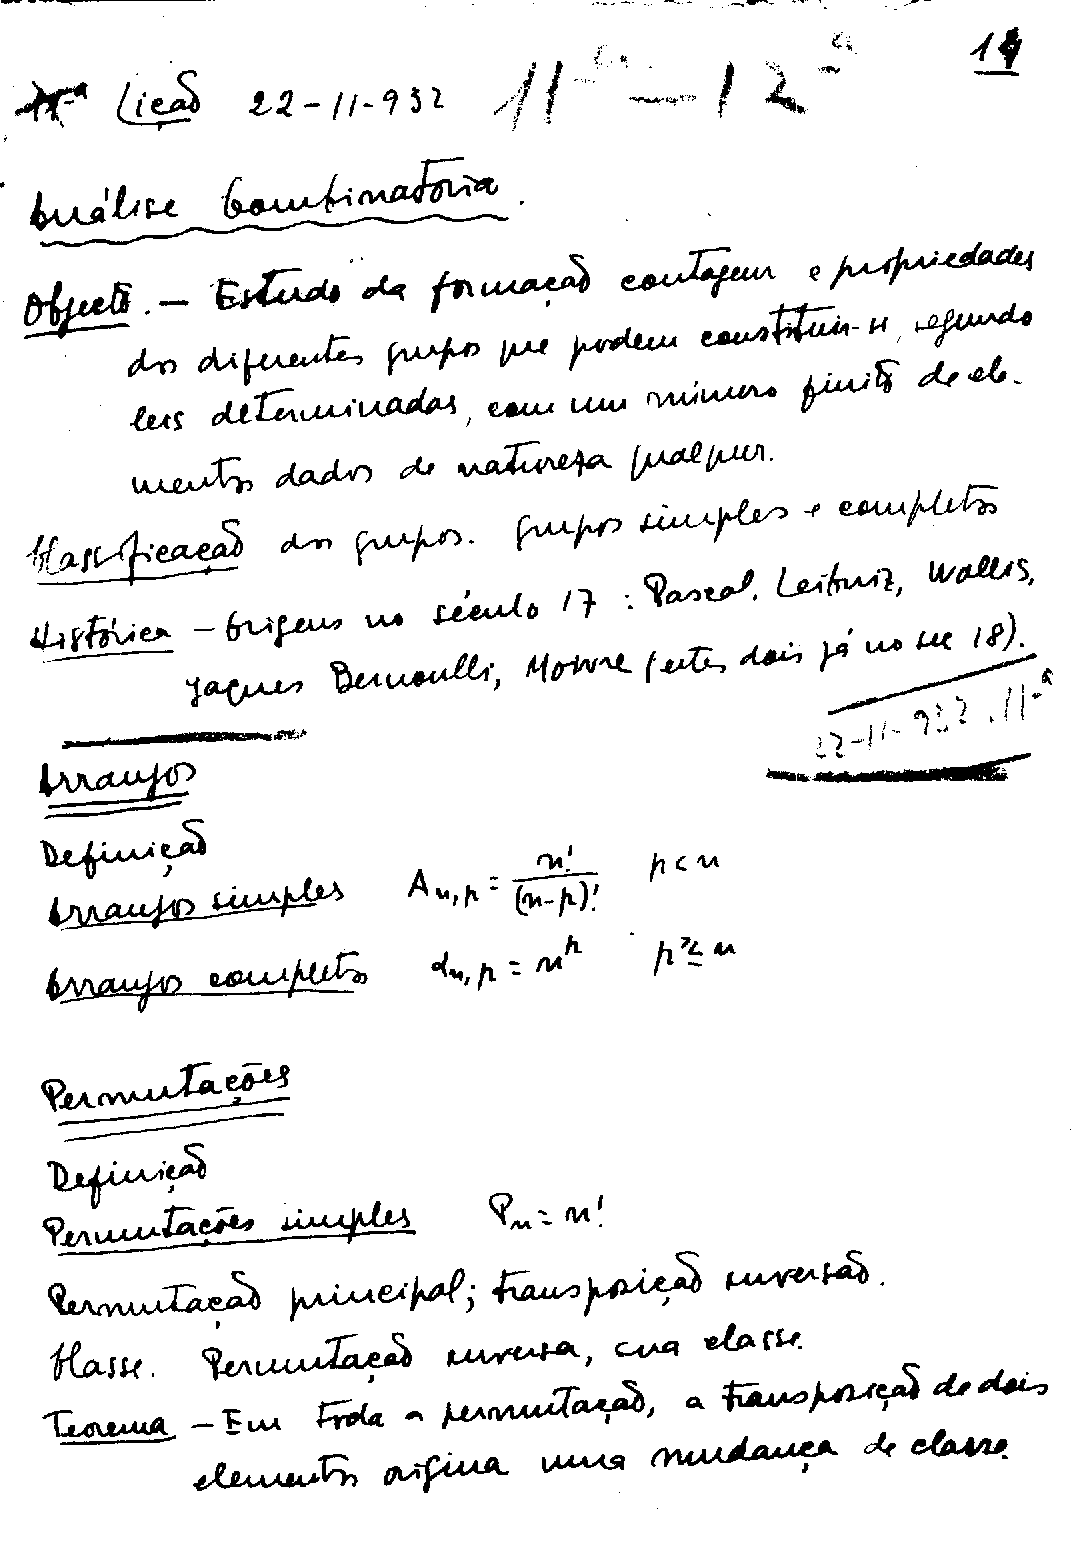 14
Lição 22-11-932 11ª - 12ª
Análise Combinatória.
Objecto. — Estudo da formação contagem e propriedades
dos diferentes grupos que podem constituir-se, segundo
leis determinadas, com um número finito de ele-
mentos dados de natureza qualquer.
Classificação dos grupos. Grupos simples e completos
Histórica — Origens no século 17 : Pascal, Leibniz, Wallis,
Jaques Bernoulli, Moivre (estes dois já no sec 18).
22-11-932. 11-ª
Arranjos
Definição
Arranjos simples A_{n,p} = n!/(n-p)! p<n
Arranjos completos α_{n,p} = n^p p⪌n
Permutações
Definição
Permutações simples P_n = n!
Permutação principal; transposição inversão.
Classe. Permutação inversa, sua classe.
Teorema — Em toda a permutação, a transposição de dois
elementos origina uma mudança de classe.